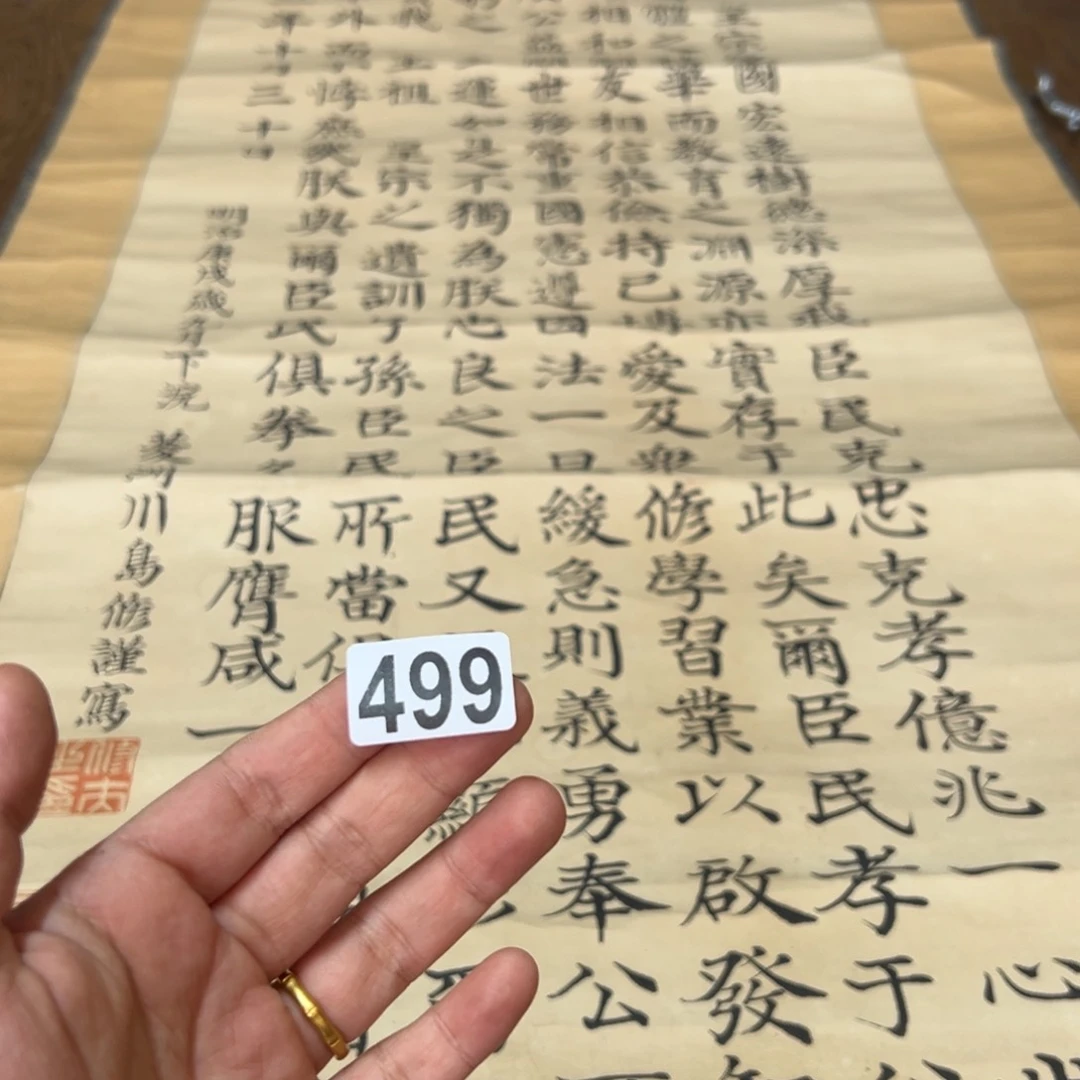 宗國宏遠樹德深厚我臣民克忠克孝億兆一心
體之華而教育之淵源亦實存于此矣爾臣民孝于
相和友相信恭儉持己博愛及衆脩學習業以啟發
公益世務常重國憲遵国法一旦緩急則義勇奉公
之運如是不獨為朕忠良之臣民又
我 皇祖 皇宗之遺訓子孫臣民所當
外而悖庶幾朕與爾臣民俱拳々服膺咸一
年十月三十日
明治庚戌歲下浣 川島脩謹寫
499